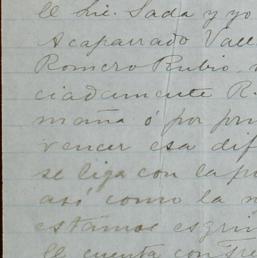 el Lic. Sada y yo
Acaparrado Vall
Romero Rubio,
ciadamente R.
maña ó por pru
vencer esa dif
se liga con la po
así como la n
estamos esgrim
El cuenta con tre